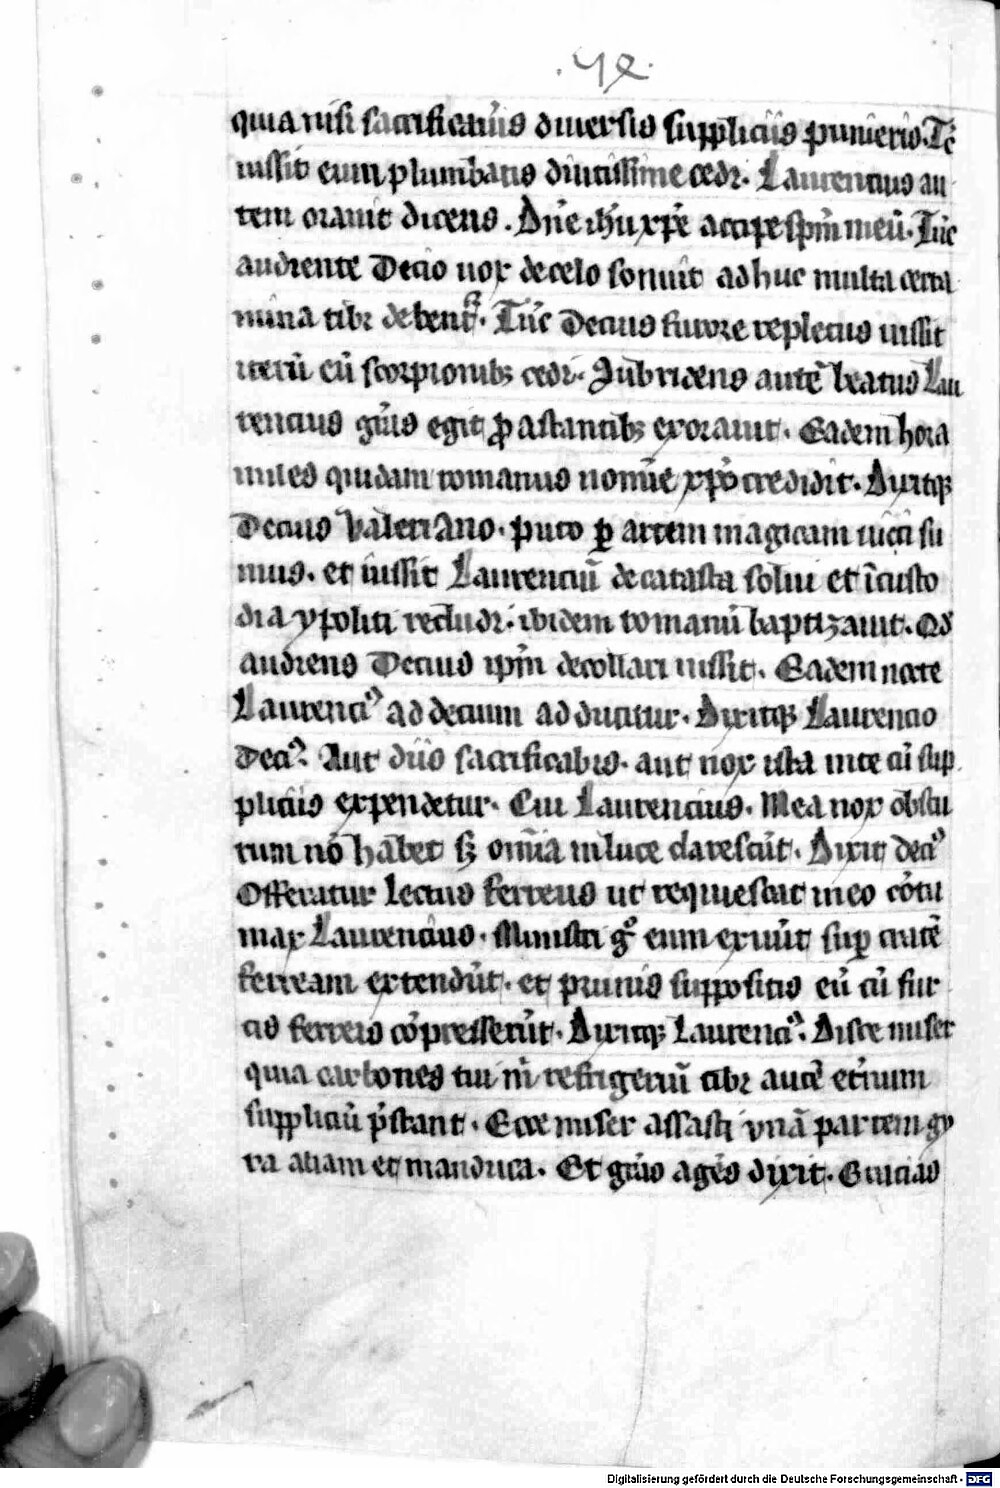 .42.
quia nisi sacrificaue͛is diuersis suppliciis punieris. Tc̄
iussit eum plumbatis diutissime cedi. Laurencius au
tem orauit dicens. Dn̄e ih̄u xp̄e accipe sp̄m meū. Tūc
audiente Decio uox de celo sonuit adhuc multa certa
mina tibi debent᷑. Tūc Decius furore repletus iussit
iterū eū scorpionibꝫ cedi. Subridens autē beatus Lau
rencius gr̄as egit ꝓ astantibꝫ exorauit. Eadem hora
miles quidam romanus nomīe xp̄o credidit. Dixitqꝫ
Decius Valeriano. puto ꝑ artem magicam uicti su
mus. et iussit Laurenciū de catasta solui et ī custo
dia ypoliti recludi. ibidem romanū baptizauit. Qd̄
audiens Decius ip̄m decollari iussit. Eadem nocte
Laurenciꝰ ad decium adducitur. Dixitqꝫ Laurencio
Deciꝰ. Aut diis sacrificabis. aut nox ista in te cū sup
pliciis expendetur. Cui Laurencius. Mea nox obscu
rum nō habet sꝫ om̄ia in luce clarescūt. Dixit deciꝰ
Offeratur lectus ferreus ut requiescat in eo cōtu
max Laurencius. Ministri gͦ eum exuūt sup̱ cratē
ferream extendūt. et prunis suppositis eū cū fur
cis ferreis cōpresserūt. Dixitqꝫ Laurenciꝰ. Disce miser
quia carbones tui m̄ refrigeriū tibi autē et͛num
suppliciū p͛stant. Ecce miser assasti vnā partem gy
ra aliam et manduca. Et gr̄as agēs dixit. Gracias
Digitalisierung gefördert durch die Deutsche Forschungsgemeinschaft - DFG